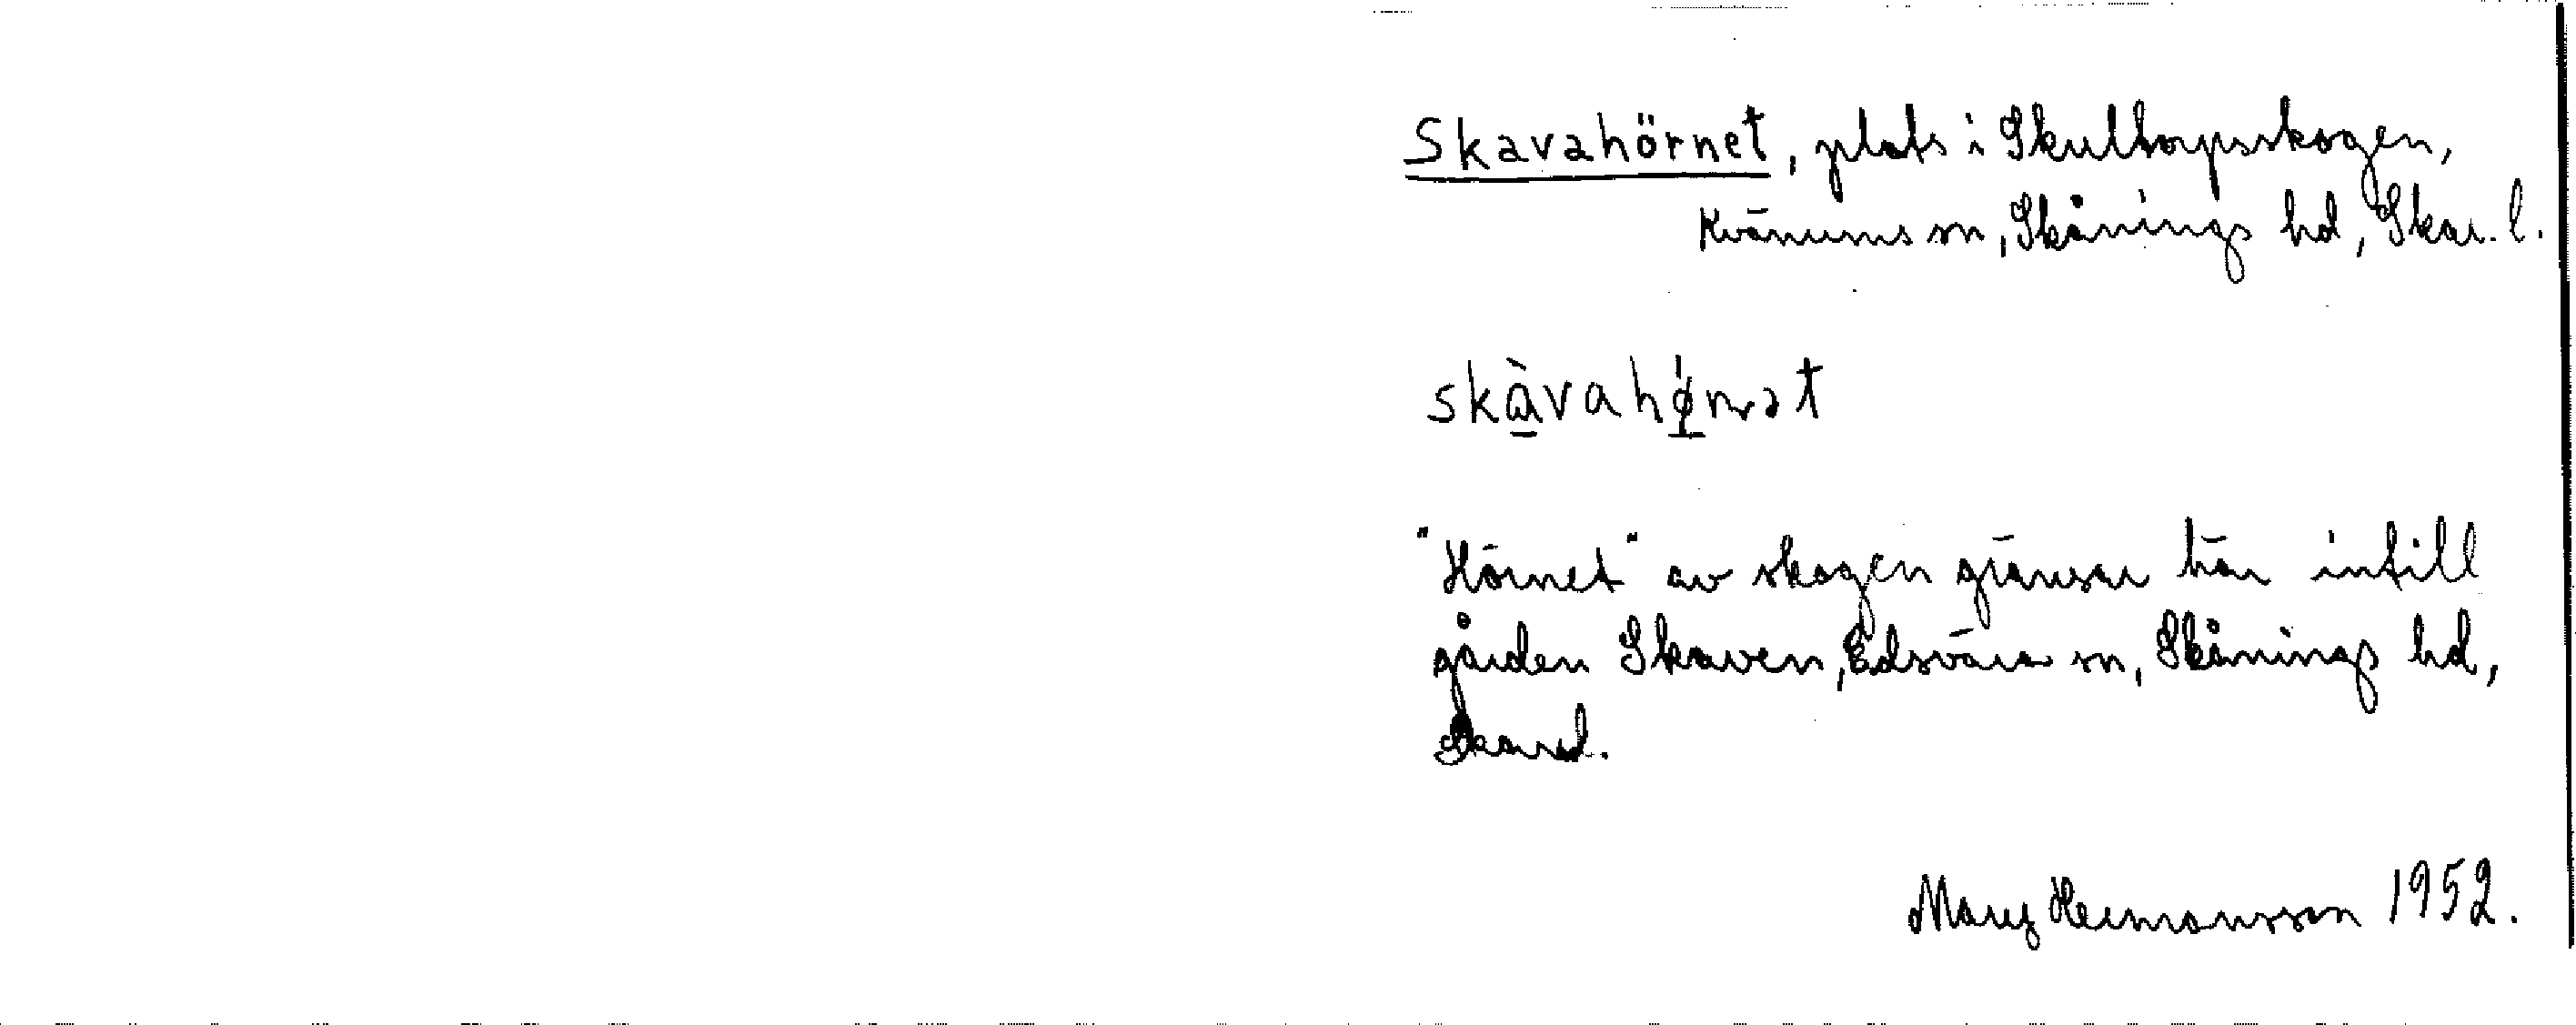 Skavahörnet, plats i Skultorpsskogen,
Kvänums sn, Skånings hd, Skar. l.
skàvahǿrnət
"Hörnet" av skogen gränsar här intill
gården Skaven, Edsvära sn, Skånings hd,
Skar.l.
Mary Hermansson 1952.